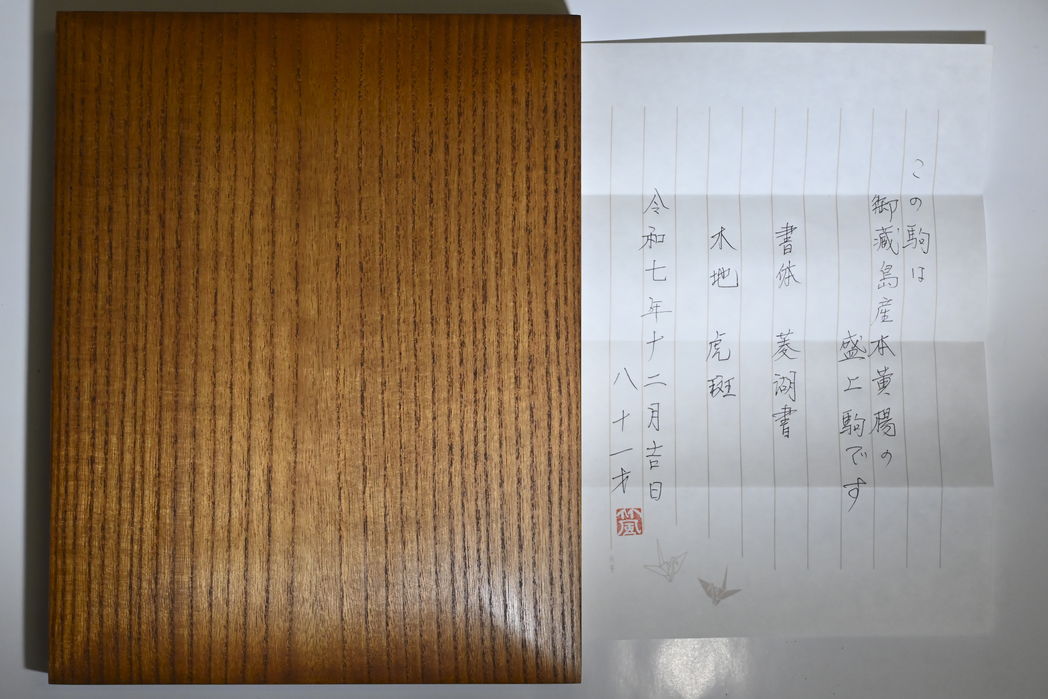 この駒は
御蔵島産本黄楊の
盛上駒です
書体 菱湖書
木地 虎斑
令和七年十二月吉日
八十一才
竹風